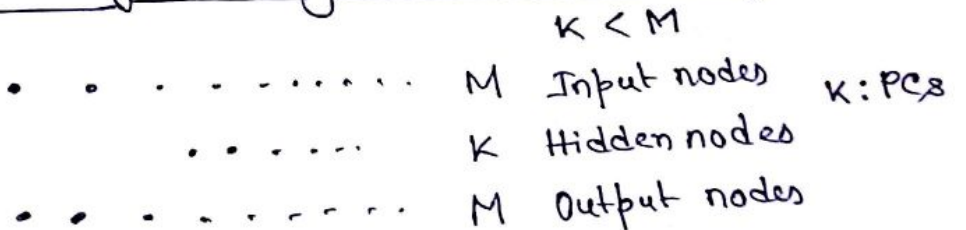 K < M
M Input nodes K : PCs
K Hidden nodes
M Output nodes